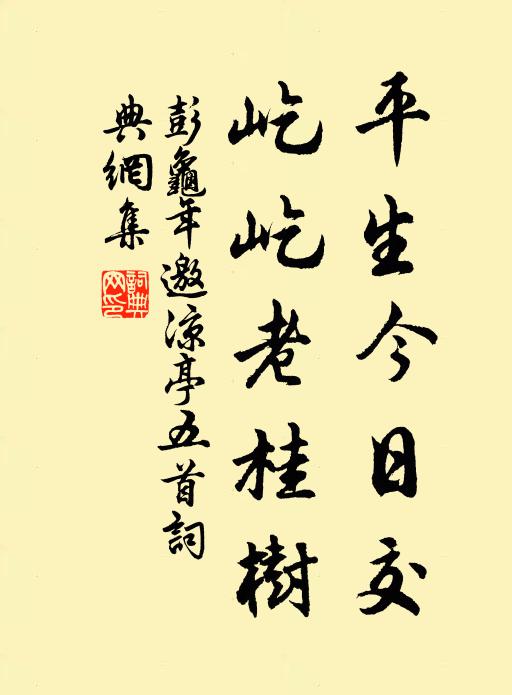 平生今日交
屹屹老桂樹
彭龜年邀涼亭五首詞
典網集
詞典网印